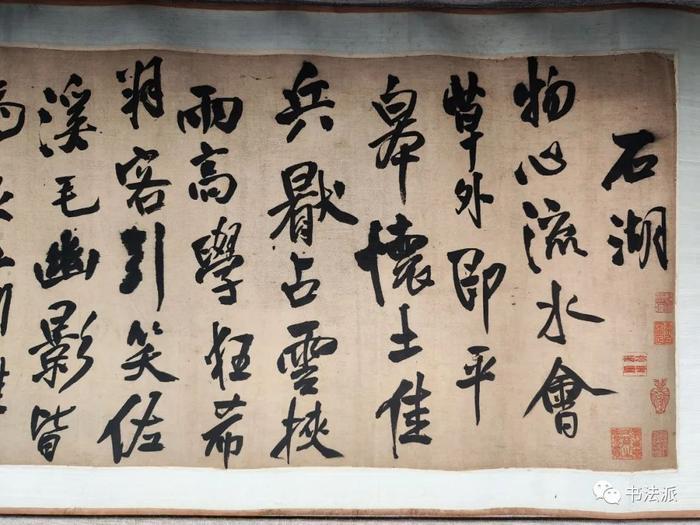 石湖
物心流水會
草外即平
皋懷土佳
兵厭占雲挾
雨高學狂希
羽客引笑佐
溪毛幽影皆
书法派